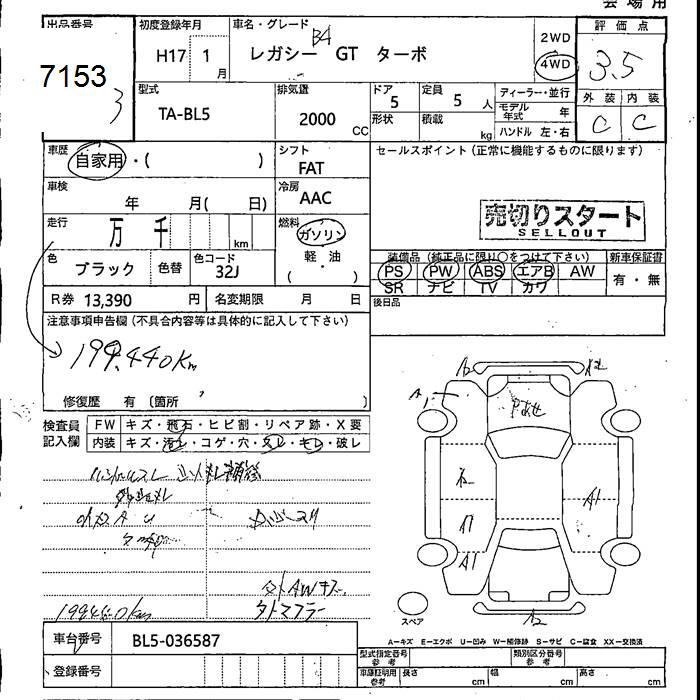 会場用
出品番号 初度登録年月 車名・グレード 評価点
7153 H17 1月 レガシー B4 GT ターボ 2WD 4WD 3.5
3
型式 排気量 ドア 定員 ディーラー・並行 外装 内装
TA-BL5 2000 CC 5 5 人 モデル年式 年 C C
形状 積載 kg ハンドル 左・右
車歴 シフト セールスポイント(正常に機能するものに限ります)
自家用・( ) FAT
車検 冷房
年 月( 日) AAC
売切りスタート
SELLOUT
走行 万 千 km 燃料 ガソリン
軽・油
( ・ )
色 ブラック 色替 色コード 32J
装備品(純正品に限り○をつけて下さい) 新車保証書
PS PW ABS エアB AW 有・無
SR ナビ TV カワ
R券 13,390 円 名変期限 月 日 後日品
注意事項申告欄(不具合内容等は具体的に記入して下さい)
199,440km
修復歴 有 〔箇所 〕
検査員記入欄 FW キズ・飛石・ヒビ割・リペア跡・X要
内装 キズ・汚レ・コゲ・穴・スレ・キレ・破レ
A1
A1
外AWキズ
社外マフラー
199440km
スペア
A-キズ E-エクボ U-凹み W-補修跡 S-サビ C-腐食 XX-交換済
車台番号 BL5-036587 型式指定番号 参考 類別区分番号 参考
登録番号 車庫証明用 参考 長さ cm 幅 cm 高さ cm